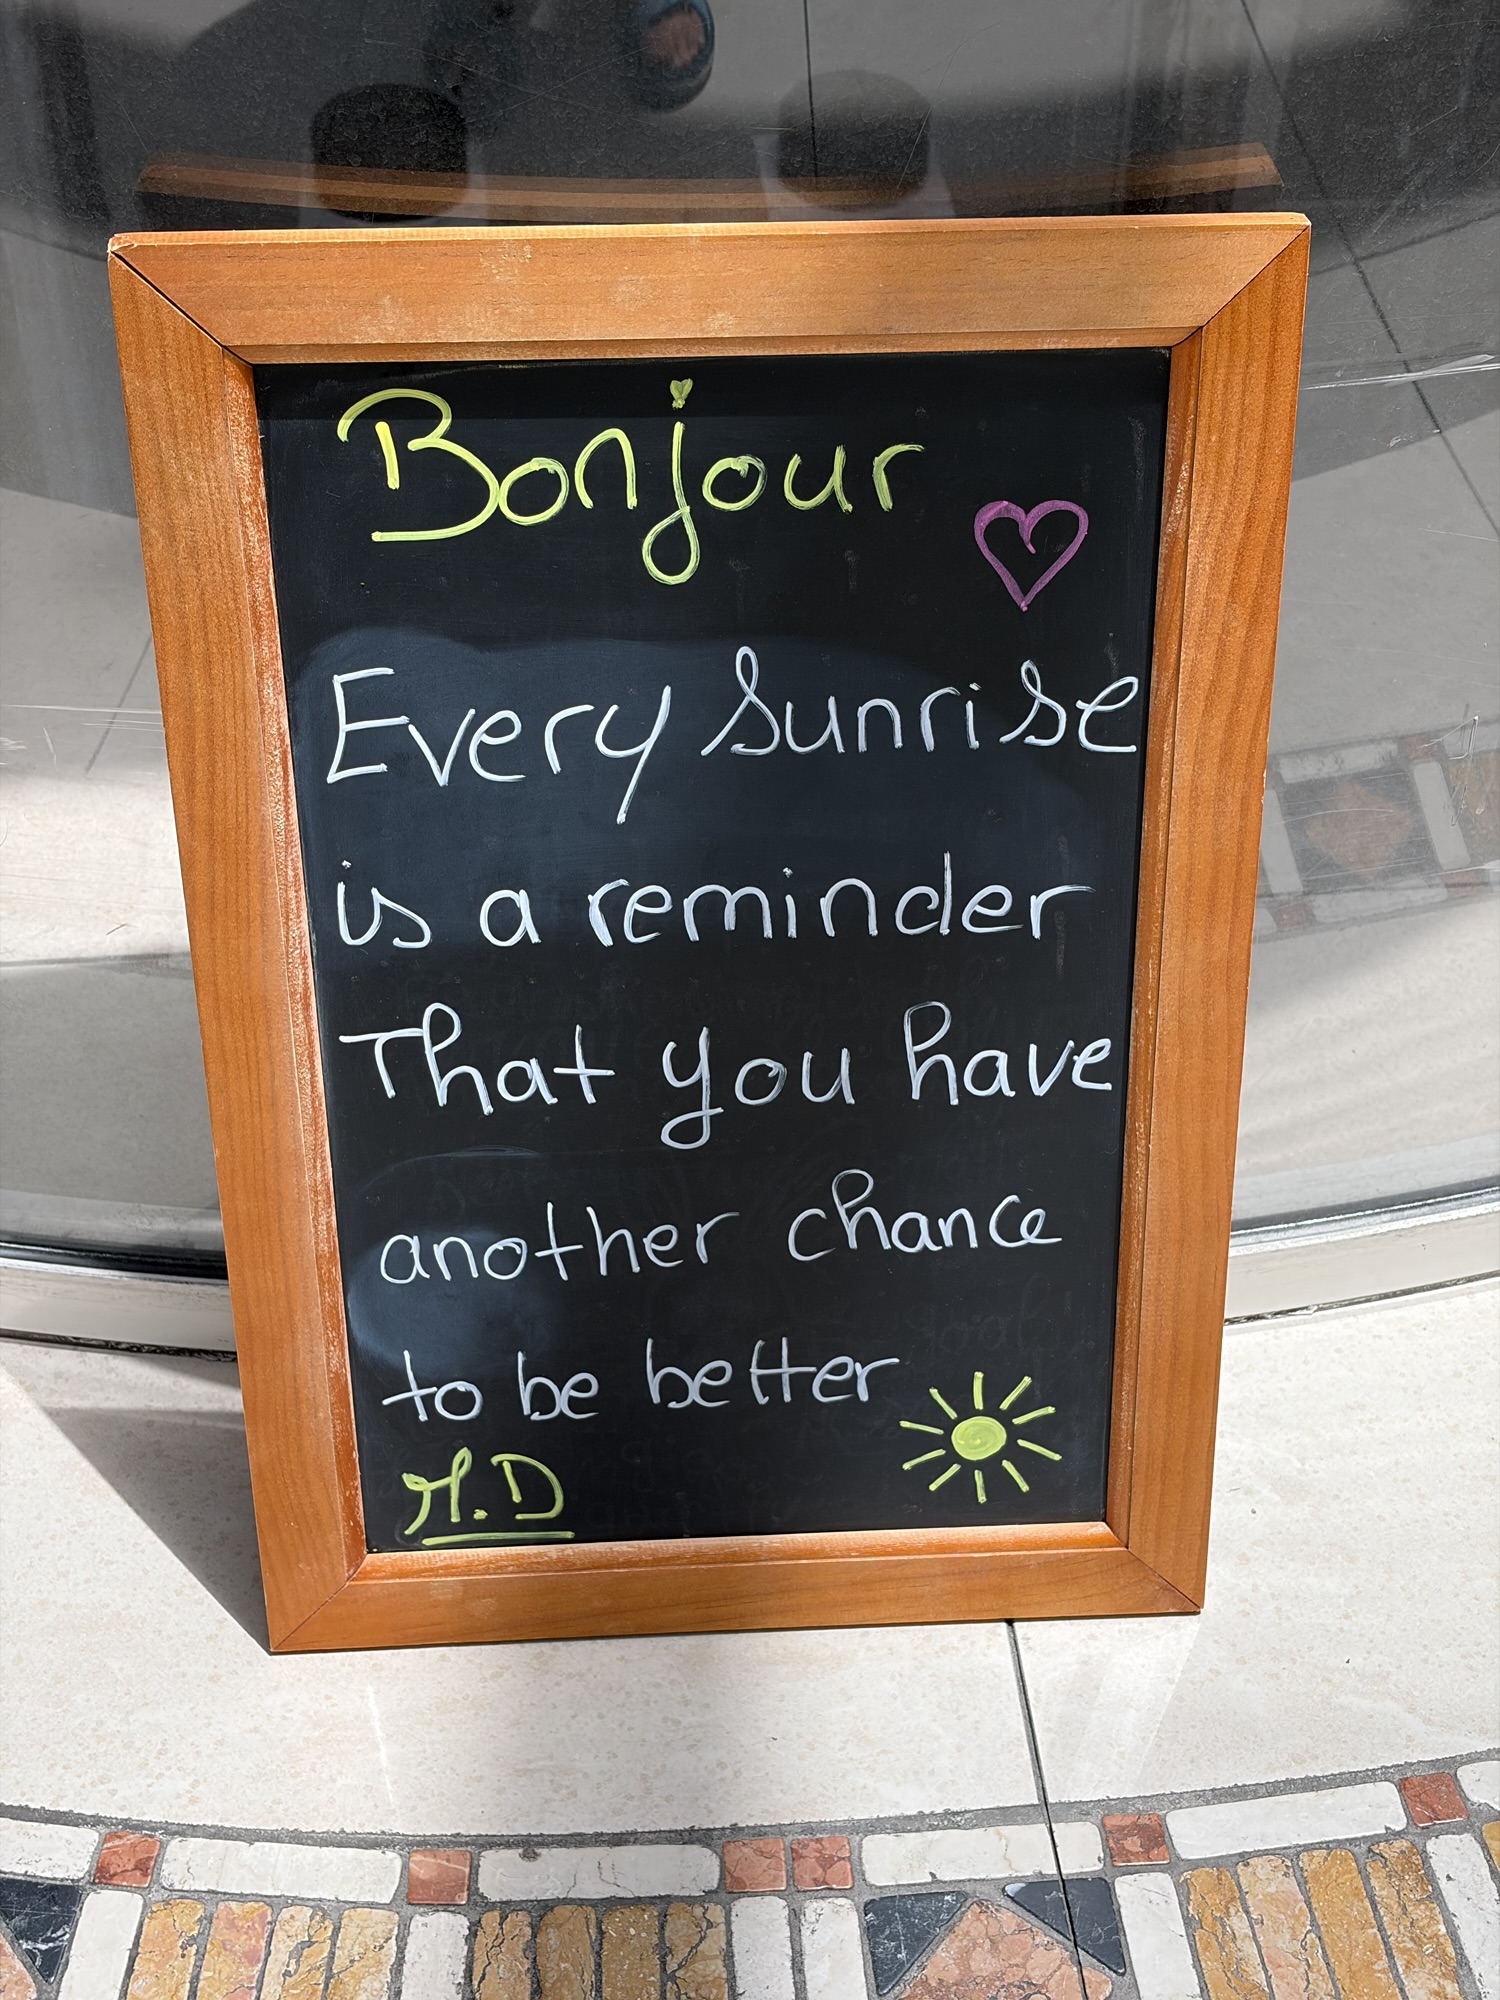 Bonjour
Every Sunrise
is a reminder
That you have
another chance
to be better
M.D